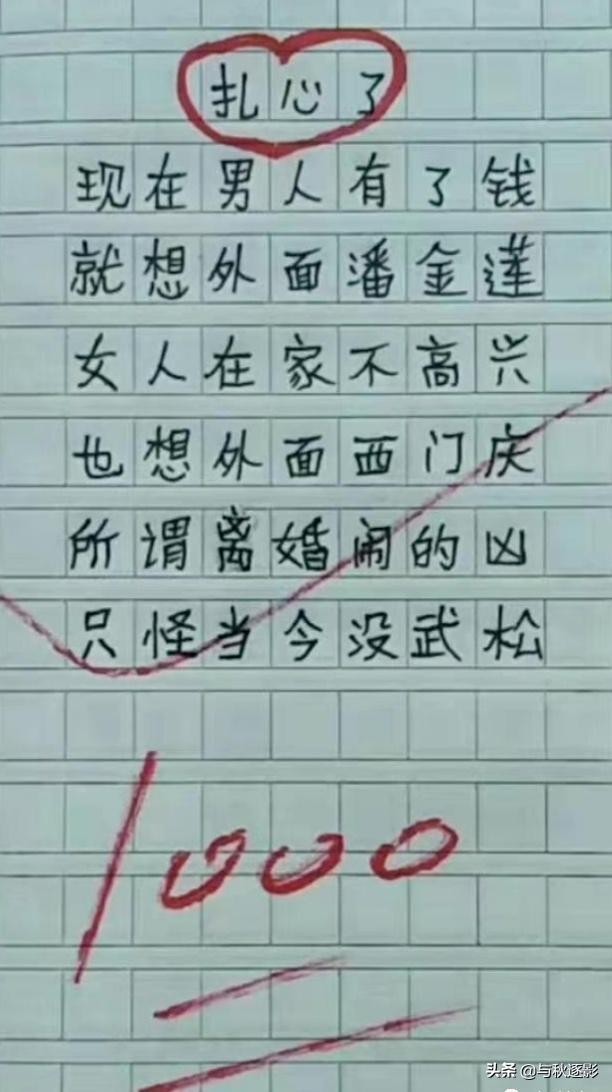 扎心了
现在男人有了钱
就想外面潘金莲
女人在家不高兴
也想外面西门庆
所谓离婚闹的凶
只怪当今没武松
1000
头条 @与秋逐影